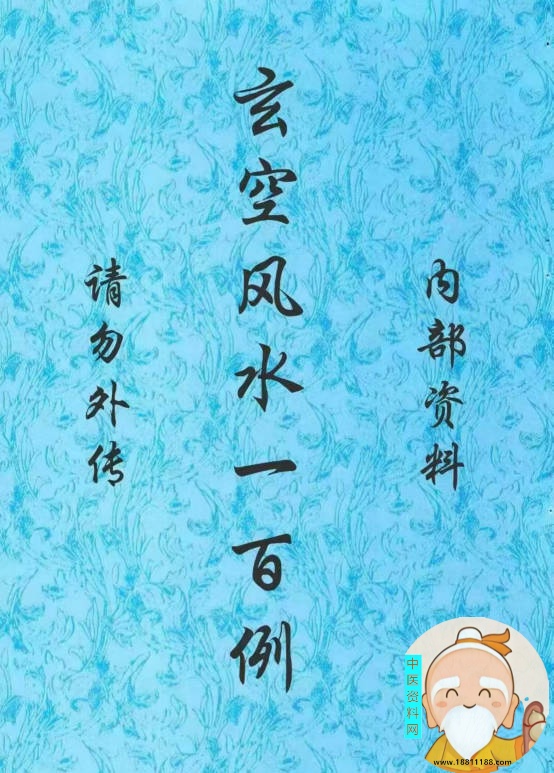 内部资料
玄空风水一百例
请勿外传
中医资料网
www.18811188.com